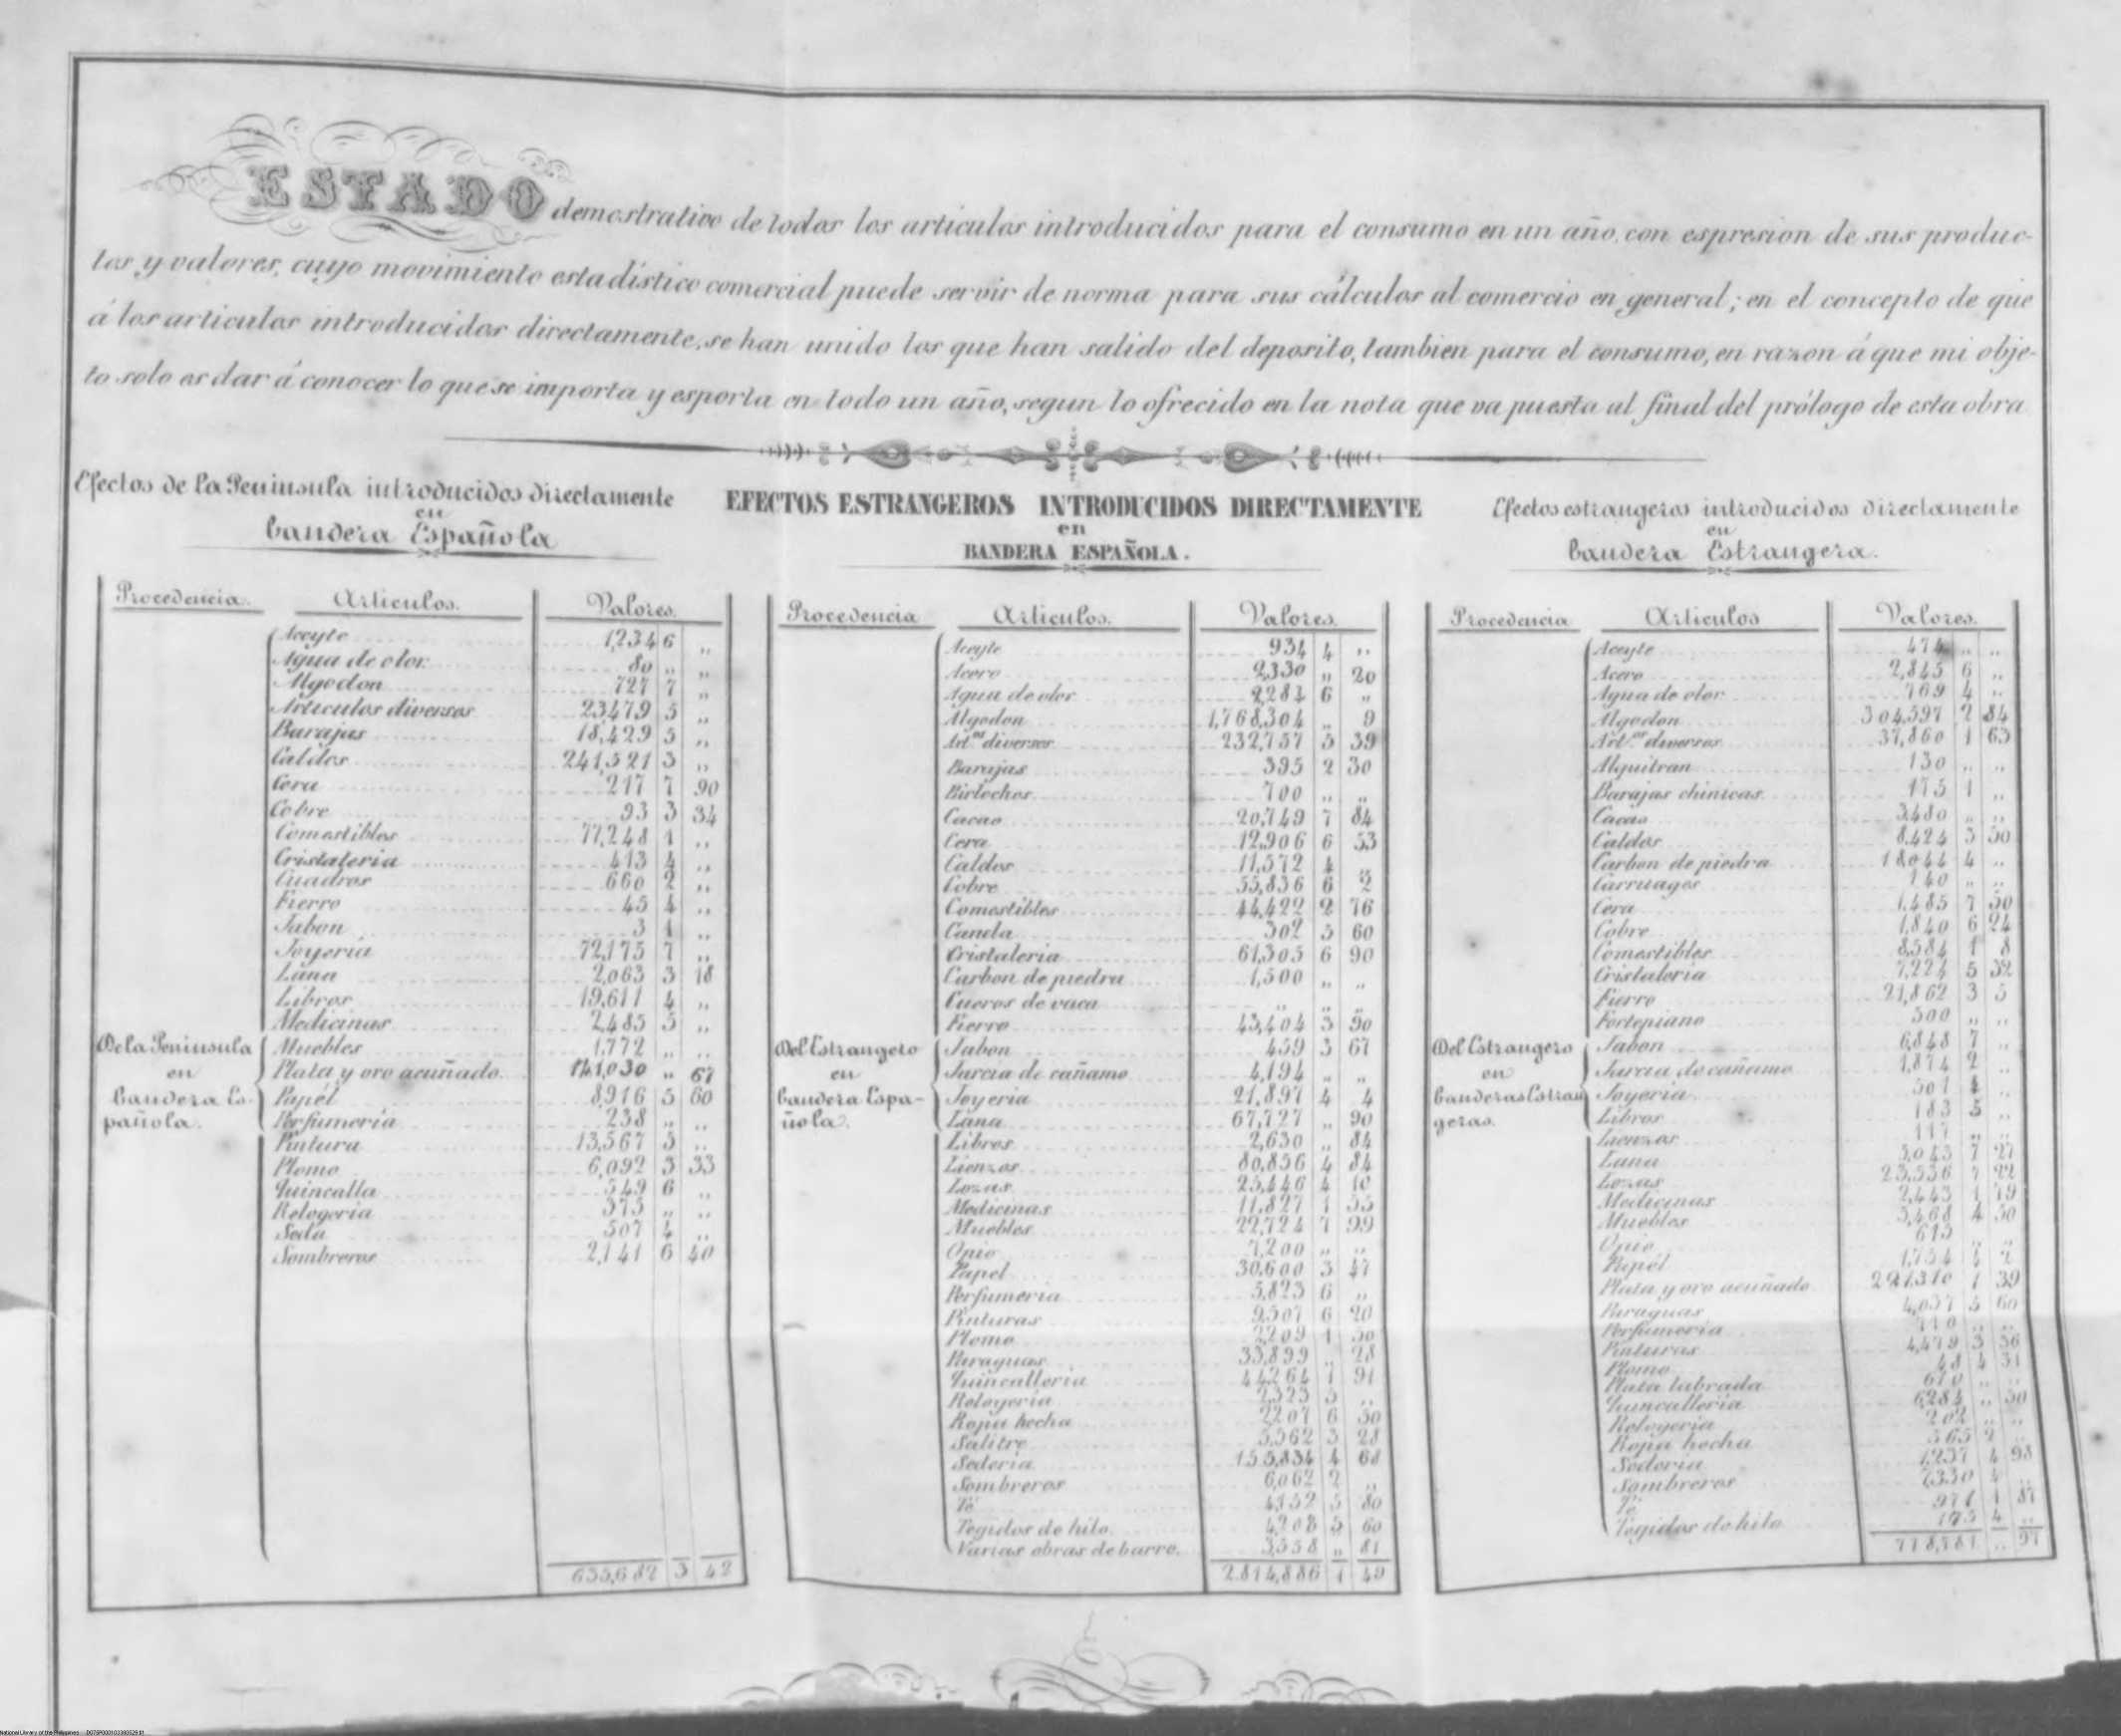 ESTADO demostrativo de todos los articulos introducidos para el consumo en un año, con espresion de sus produc-
tos y valores, cuyo movimiento estadístico comercial puede servir de norma para sus cálculos al comercio en general; en el concepto de que
á los articulos introducidos directamente, se han unido los que han salido del deposito, tambien para el consumo, en razon á que mi obje-
to solo es dar á conocer lo que se importa y esporta en todo un año, segun lo ofrecido en la nota que va puesta al final del prólogo de esta obra
Efectos de la Peninsula introducidos directamente
en
bandera Española
Procedencia. Articulos. Valores.
De la Peninsula
en
bandera Es-
pañola.
Aceyte 1,234 6 ,,
Agua de olor 80 ,, ,,
Algodon 727 7 ,,
Articulos diversos 23479 5 ,,
Barajas 18,429 5 ,,
Caldos 241,521 3 ,,
Cera 217 7 90
Cobre 93 3 34
Comestibles 77,248 1 ,,
Cristaleria 413 4 ,,
Cuadros 660 2 ,,
Fierro 45 4 ,,
Jabon 3 1 ,,
Joyería 72,175 7 ,,
Lana 2,063 3 18
Libros 19,611 4 ,,
Medicinas 2,485 5 ,,
Muebles 1,772 ,, ,,
Plata y oro acuñado. 141,030 ,, 67
Papél 8,916 5 60
Perfumería 238 ,, ,,
Pintura 13,567 3 ,,
Plomo 6,092 3 33
Quincalla 549 6 ,,
Relogeria 375 ,, ,,
Seda 507 4 ,,
Sombreros 2,141 6 40
635,682 3 42
EFECTOS ESTRANGEROS INTRODUCIDOS DIRECTAMENTE
en
BANDERA ESPAÑOLA.
Procedencia Articulos. Valores.
Del Estrangero
en
bandera Espa-
ñola.
Aceyte 934 4 ,,
Acero 2,330 ,, 20
Agua de olor 2,284 6 ,,
Algodon 1,768,304 ,, 9
Art.os diversos 232,757 5 39
Barajas 395 2 30
Birlochos 700 ,, ,,
Cacao 20,749 7 84
Cera 12,906 6 53
Caldos 11,572 4 ,,
Cobre 55,836 6 2
Comestibles 44,422 2 76
Canela 502 5 60
Cristaleria 61,305 6 90
Carbon de piedra 1,500 ,, ,,
Cueros de vaca ,, ,, ,,
Fierro 43,404 3 50
Jabon 459 3 67
Jarcia de cáñamo 4,194 ,, ,,
Joyeria 21,897 4 4
Lana 67,727 ,, 90
Libros 2,630 ,, 84
Lienzos 80,856 4 84
Lozas 25,446 4 10
Medicinas 11,827 1 55
Muebles 22,724 7 99
Opio 7,200 ,, ,,
Papel 30,600 3 47
Perfumeria 5,823 6 ,,
Pinturas 9,507 6 20
Plomo 2,209 1 50
Paraguas 33,899 ,, 28
Quincalleria 44,264 7 91
Relogeria 2,525 5 ,,
Ropa hecha 2207 6 50
Salitre 5,562 3 28
Sederia 155,834 4 68
Sombreros 6,062 2 ,,
Té 4,152 5 80
Tegidos de hilo. 4,208 5 60
Varias obras de barro. 3,558 ,, 81
2.814,886 1 49
Efectos estrangeros introducidos directamente
en
bandera Estrangera.
Procedencia Articulos Valores.
Del Estrangero
en
banderas Estran
geras.
Aceyte 474 ,, ,,
Acero 2,845 6 ,,
Agua de olor 769 4 ,,
Algodon 304,597 2 84
Art.os diversos 37,860 1 63
Alquitran 130 ,, ,,
Barajas chinicas 175 1 ,,
Cacao 3,480 ,, ,,
Caldos 8,424 3 50
Carbon de piedra 18044 4 ,,
Carruages 140 ,, ,,
Cera 1,485 7 50
Cobre 1,840 6 24
Comestibles 8,584 1 8
Cristaleria 7,224 5 32
Fierro 21,862 3 5
Fortepiano 500 ,, ,,
Jabon 6,848 7 ,,
Jarcia de cáñamo 1,874 2 ,,
Joyeria 501 4 ,,
Libros 183 5 ,,
Lienzos 117 ,, ,,
Lana 5,043 7 27
Lozas 23,536 7 22
Medicinas 2,443 1 79
Muebles 5,468 4 50
Opio 615 ,, ,,
Papél 1,754 2
Plata y oro acuñado 1 39
Paraguas 4,057 5 60
Perfumeria 110 ,, ,,
Pinturas 4,479 3 56
Plomo 48 4 31
Plata labrada 610 ,, ,,
Quincalleria 6,284 ,, 50
Relogeria 202 ,, ,,
Ropa hecha 565 2 ,,
Sederia 1,257 4 98
Sombreros 7,330 4 ,,
Té 1 87
Tegidos de hilo 4 ,,
778,781 ,, 97
National Library of the Philippines